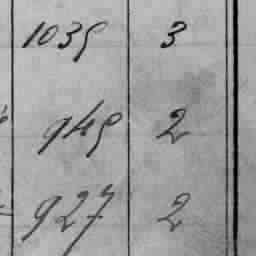 1039 3
949 2
927 2